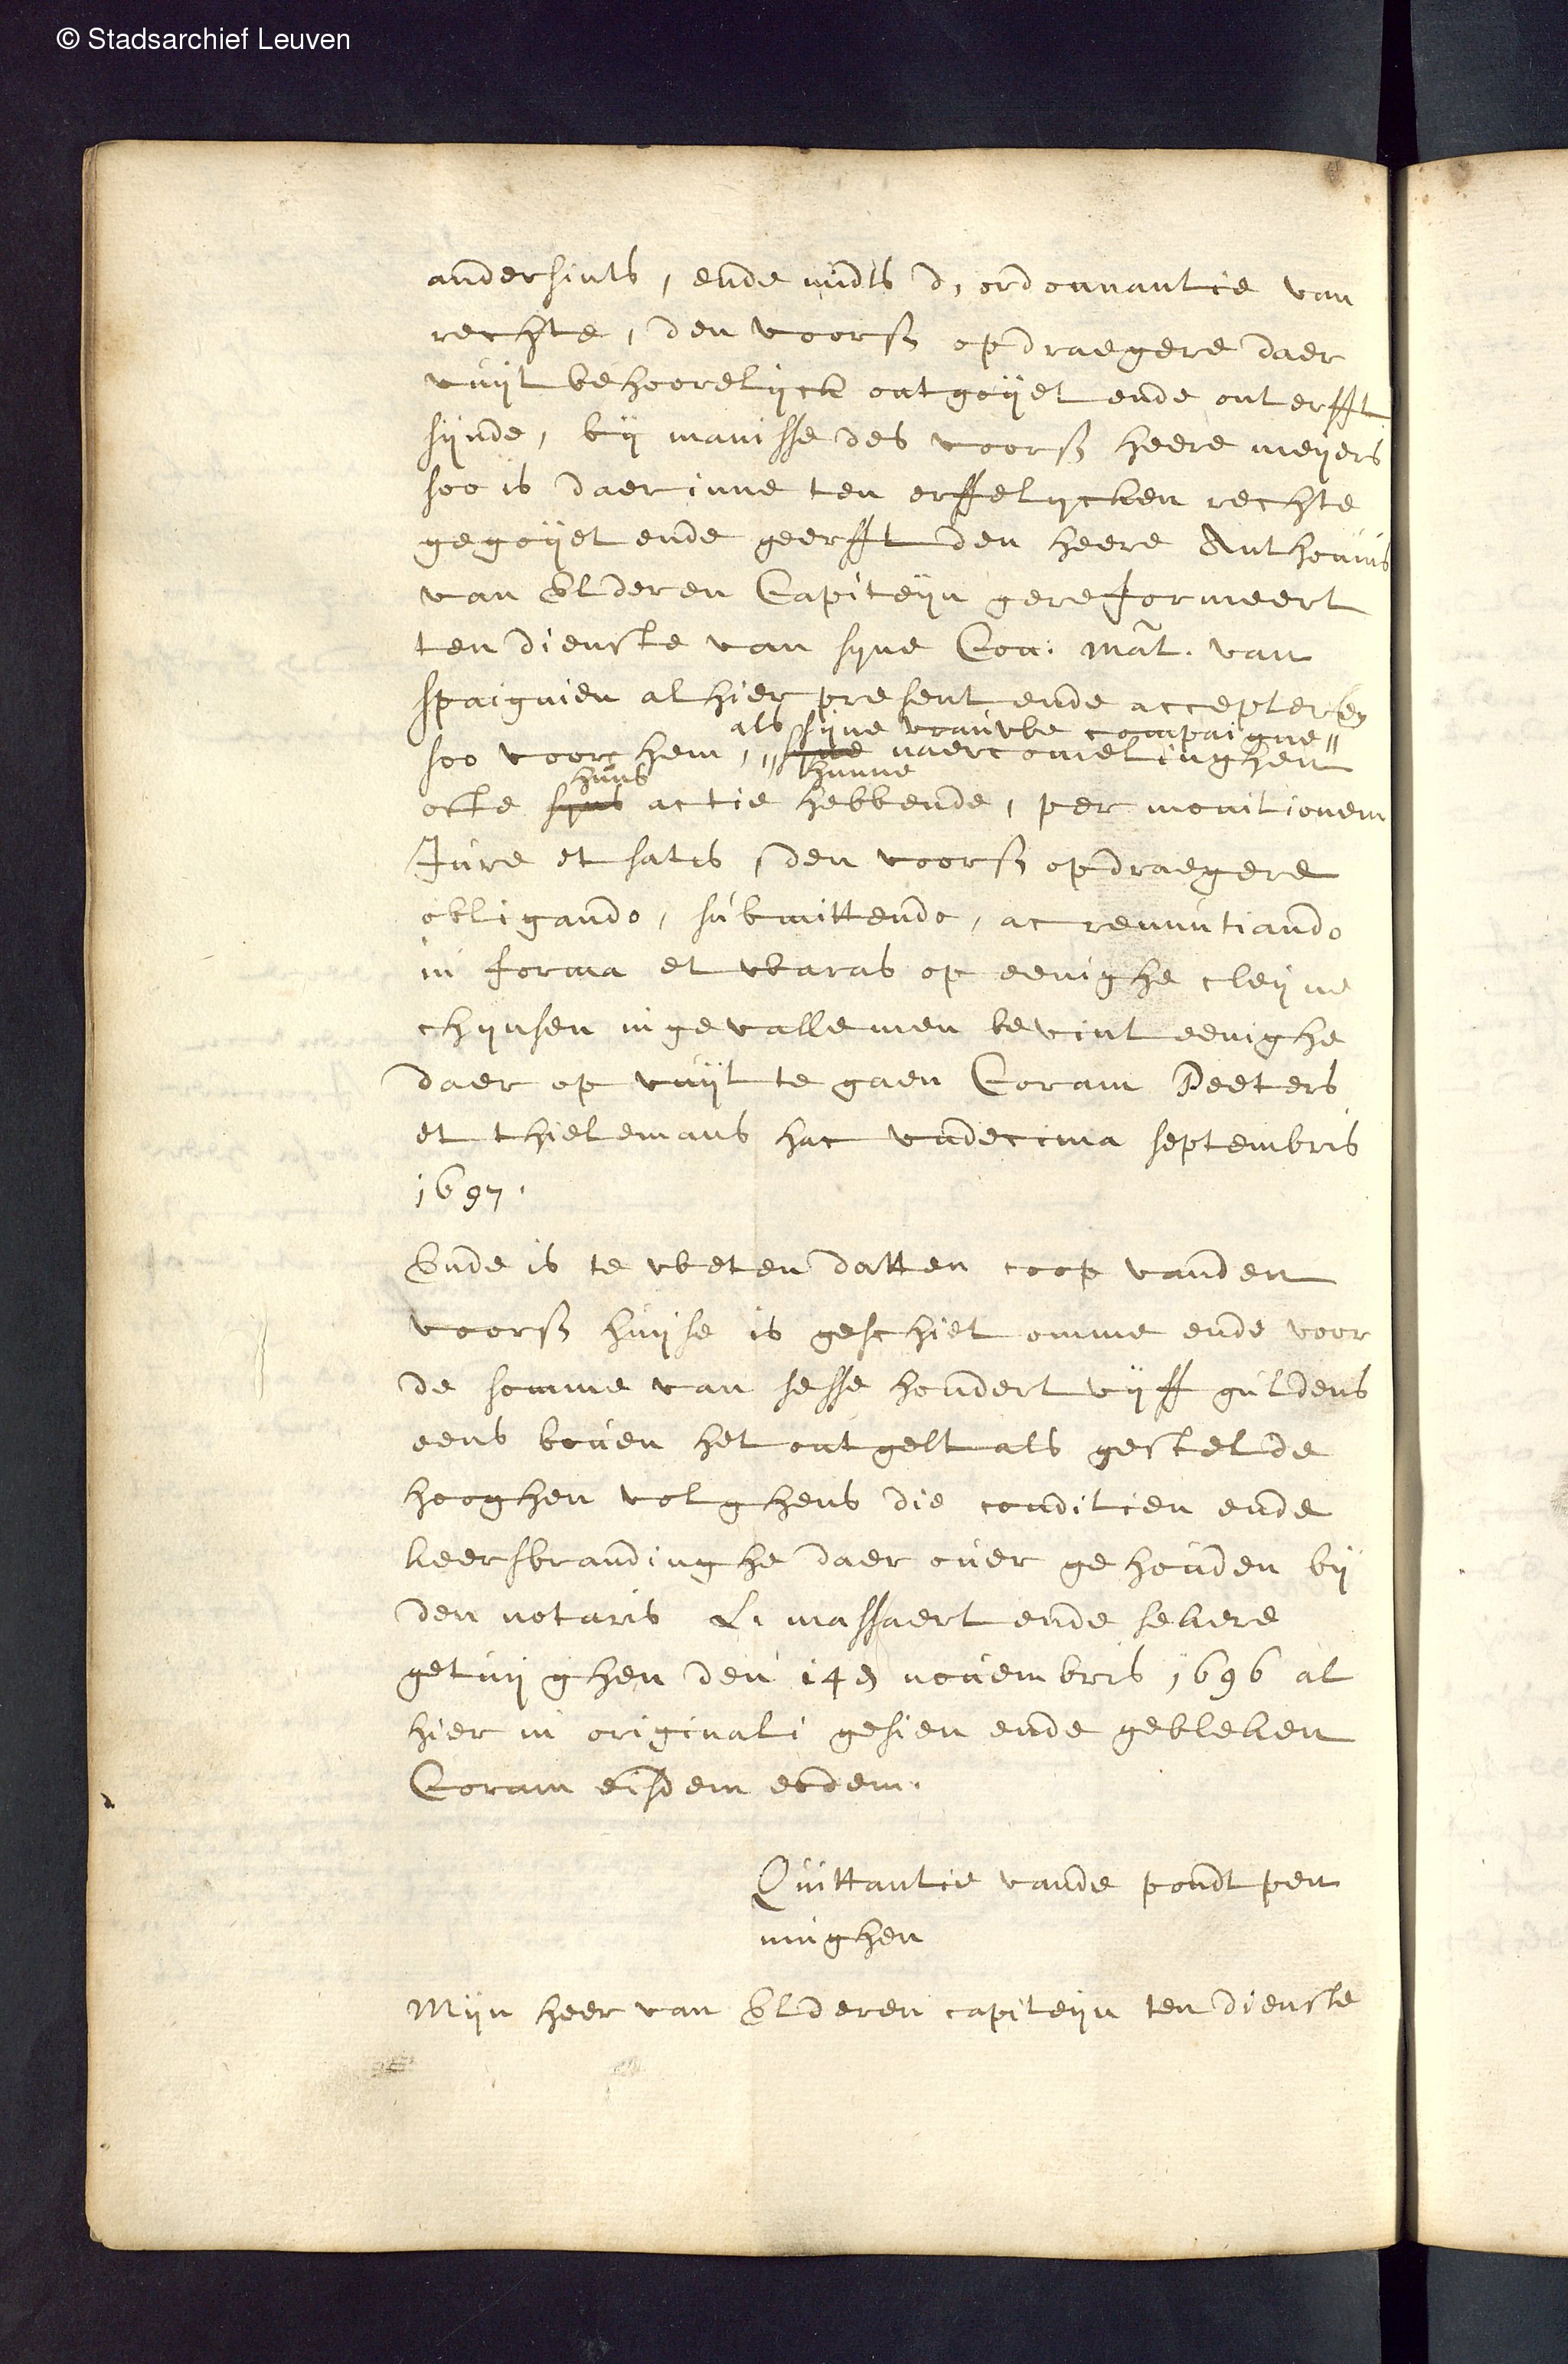 © Stadsarchief Leuven
andersints, ende midts d, ordonnantie van
rechte, den voors opdraegere daer
vuijt behoorelijck ontgoijet ende onterfft
sijnde, bij manisse des voors heere meijers
soo is daerinne ten erffelijcken rechte
gegoijet ende geerfft den heere Anthonius
van Elderen Capiteijn gereformeert
ten dienste van sijne Con: Mat. van
spaignien alhier present ende accepteren
als sijne vrauwe compaigne
soo voor hem, syne naercomelinghen
huns hunne
ofte syns actie hebbende, per monitionem
Jure et satis, den voors opdraegere
obligando, submittendo, ac renuntiando
in forma et waras op eenighe cleijne
chijnsen ingevallemen bevint eenighe
daer op vuijt te gaen Coram Peeters
et thielemans hac undecima septembris
1697.
Ende is te weten datten coop vanden
voors huijse is geschiet omme ende voor
de somme van sesse hondert vijff guldens
eens boven het ontgelt als gestelde
hooghen volghens die conditien ende
keersbrandinghe daer over gehouden bij
den notaris L. massaert ende sekere
getuijghen den 14e novembris 1696 al
hier in originali gesien ende gebleken
Coram eisdem eodem.
Quittantie vande pondt pen
ninghen
Mijn heer van Elderen capiteijn ten dienste